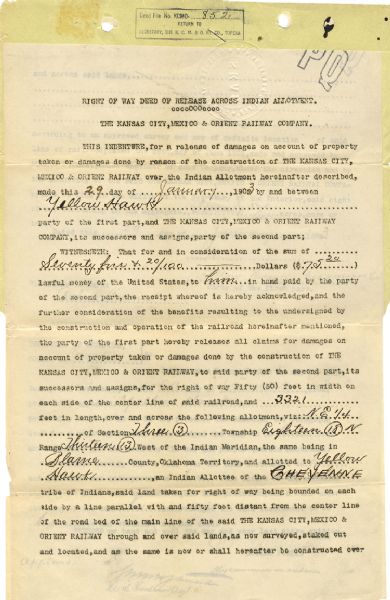 Deed File No. KCMO- 852
RETURN TO
SECRETARY, THE K. C. M. & O. RY. CO., TOPEKA
PQ
RIGHT OF WAY DEED OF RELEASE ACROSS INDIAN ALLOTMENT.
ooooOOOoooo
THE KANSAS CITY, MEXICO & ORIENT RAILWAY COMPANY.
THIS INDENTURE, for a release of damages on account of property
taken or damages done by reason of the construction of THE KANSAS CITY,
MEXICO & ORIENT RAILWAY over the Indian Allotment hereinafter described,
made this 29 day of January 1903 by and between
Yellow Hawk
party of the first part, and THE KANSAS CITY, MEXICO & ORIENT RAILWAY
COMPANY, its successors and assigns, party of the second part;
WITNESSETH: That for and in consideration of the sum of
Seventy five & 20/100 Dollars ($75.20)
lawful money of the United States, to him in hand paid by the party
of the second part, the receipt whereof is hereby acknowledged, and the
further consideration of the benefits resulting to the undersigned by
the construction and operation of the railroad hereinafter mentioned,
the party of the first part hereby releases all claims for damages on
account of property taken or damages done by the construction of THE
KANSAS CITY, MEXICO & ORIENT RAILWAY, to said party of the second part, its
successors and assigns, for the right of way Fifty (50) feet in width on
each side of the center line of said railroad, and 3321
feet in length, over and across the following allotment, viz: N.E 1/4
of Section Three (3) Township Eighteen (18) N
Range Thirteen (13) West of the Indian Meridian, the same being in
Blaine County, Oklahoma Territory, and allotted to Yellow
Hawk, an Indian Allottee of the CHEYENNE
tribe of Indians, said land taken for right of way being bounded on each
side by a line parallel with and fifty feet distant from the center line
of the road bed of the main line of the said THE KANSAS CITY, MEXICO &
ORIENT RAILWAY through and over said lands, as now surveyed, staked out
and located, and as the same is now or shall hereafter be constructed over